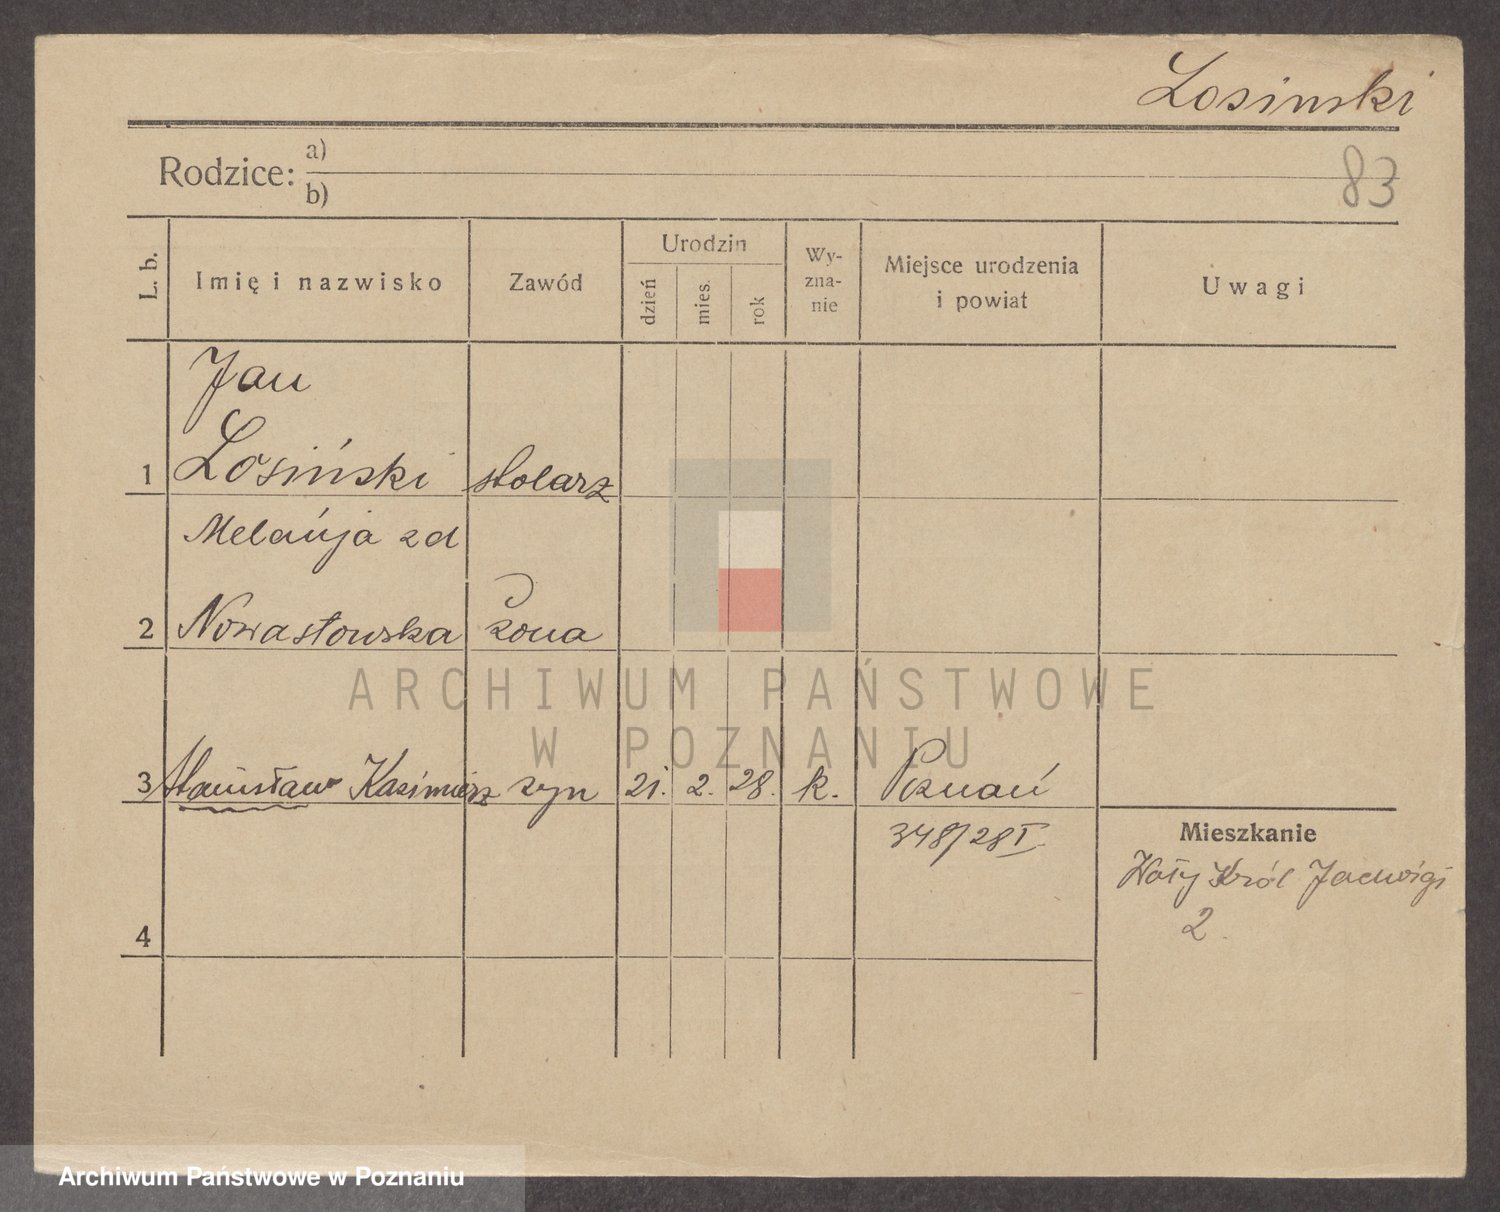 Losinski
Rodzice: a)
b)
83
L. b.
Imię i nazwisko
Zawód
Urodzin
dzień
mies.
rok
Wy-
zna-
nie
Miejsce urodzenia
i powiat
Uwagi
Jan
1 Losiński stolarz
Melańja zd
2 Nowastowska żona
ARCHIWUM PAŃSTWOWE
W POZNANIU
3 Stanisław Kazimierz syn 21. 2. 28. k. Poznań
348/28 I.
Mieszkanie
Wały Król Jadwigi
2.
4
Archiwum Państwowe w Poznaniu